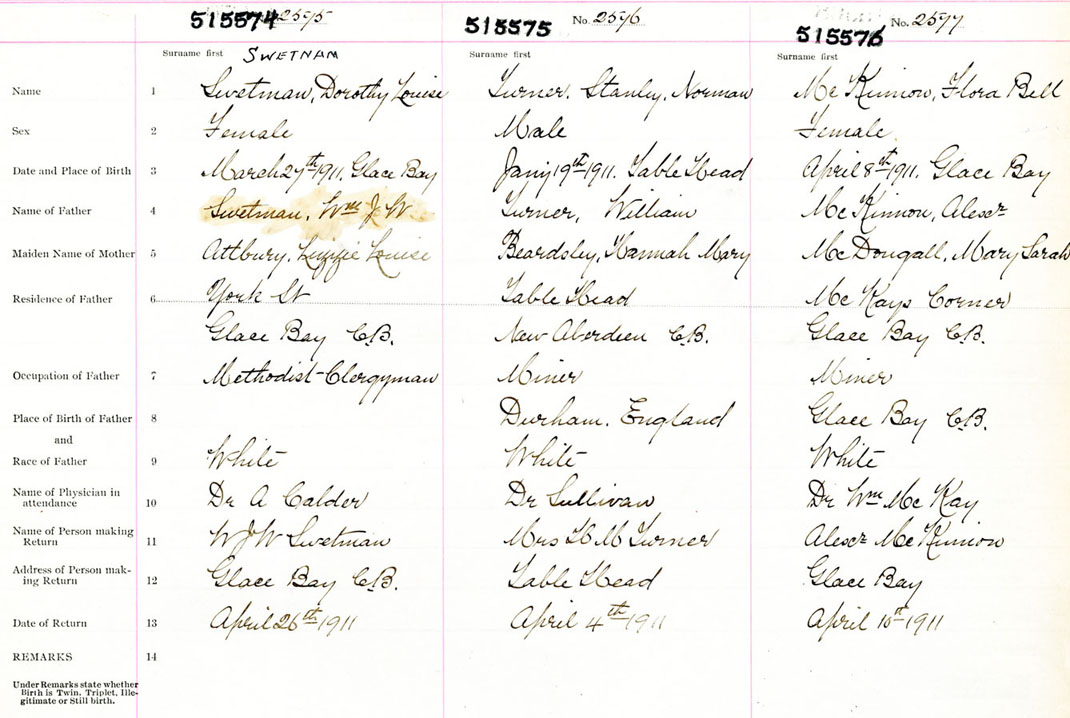 515574 2575 515575 No. 2576 515576 No. 2577
Surname first SWETNAM Surname first Surname first
Name 1 Swetman, Dorothy Louise Turner. Stanley. Norman Mc Kinnon, Flora Bell
Sex 2 Female Male Female
Date and Place of Birth 3 March 27th 1911, Glace Bay Jany 19th 1911. Table Head April 8th 1911. Glace Bay
Name of Father 4 Swetman, Wm J W. Turner, William Mc Kinnon, Alexr
Maiden Name of Mother 5 Attbury. Lizzie Louise Beardsley, Hannah Mary McDougall, Mary Sarah
Residence of Father 6 York St Table Head Mc Kays Corner
Glace Bay C.B. New Aberdeen C.B. Glace Bay C.B.
Occupation of Father 7 Methodist-Clergyman Miner Miner
Place of Birth of Father 8 Durham. England Glace Bay C.B.
and
Race of Father 9 White White White
Name of Physician in
attendance 10 Dr A Calder Dr Sullivan Dr Wm Mc Kay
Name of Person making
Return 11 W J W Swetman Mrs H M Turner Alexr McKinnon
Address of Person mak-
ing Return 12 Glace Bay C.B. Table Head Glace Bay
Date of Return 13 April 26th 1911 April 4th 1911 April 10th 1911
REMARKS 14
Under Remarks state whether
Birth is Twin, Triplet, Ille-
gitimate or Still birth.